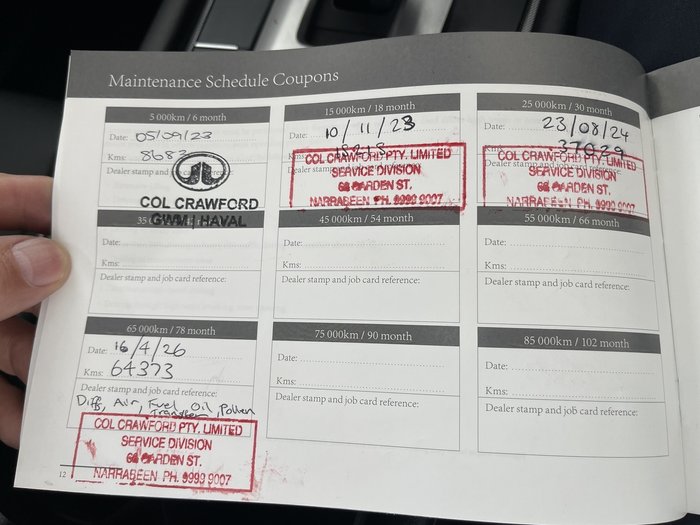 Maintenance Schedule Coupons
5 000km / 6 month
Date: 05/09/23
Kms: 8683
Dealer stamp and
COL CRAWFORD
GWM | HAVAL
15 000km / 18 month
Date: 10/11/23
Kms:
Dealer stamp and job card reference:
COL CRAWFORD PTY. LIMITED
SERVICE DIVISION
GARDEN ST.
NARRABEEN PH. 9999 9007
25 000km / 30 month
Date: 23/08/24
Kms: 37029
Dealer stamp and job card reference:
COL CRAWFORD PTY. LIMITED
SERVICE DIVISION
GARDEN ST.
NARRABEEN PH. 9999 9007
Date:
Kms:
Dealer stamp and job card reference:
45 000km / 54 month
Date:
Kms:
Dealer stamp and job card reference:
55 000km / 66 month
Date:
Kms:
Dealer stamp and job card reference:
65 000km / 78 month
Date: 16/4/26
Kms: 64373
Dealer stamp and job card reference:
Diff, Air, Fuel, Oil, Pollen
Transfer
COL CRAWFORD PTY. LIMITED
SERVICE DIVISION
GARDEN ST.
NARRABEEN PH. 9999 9007
75 000km / 90 month
Date:
Kms:
Dealer stamp and job card reference:
85 000km / 102 month
Date:
Kms:
Dealer stamp and job card reference:
12